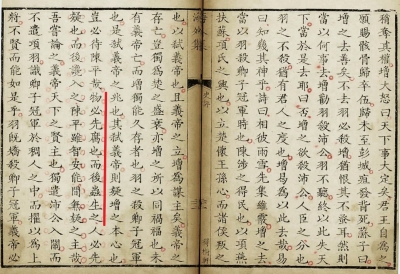 稍奪其權增大怒曰天下事大定矣君王自為之
願賜骸骨歸卒伍歸未至彭城疽發背死蘇子曰
增之去善矣不去羽必殺增獨恨其不蚤耳然則
當以何事去增勸羽殺沛公羽不聽終以此失天
下當於是去耶曰否增之欲殺沛公人臣之分也
羽之不殺猶有君人之度也增曷為以此去哉易
曰知幾其神乎詩曰相彼雨雪先集維霰增之去
當以羽殺卿子冠軍時也陳涉之得民也以項燕
扶蘇項氏之興也以立楚懷王孫心而諸侯叛之
也以弑義帝也且義帝之立增為謀主矣義帝之
存亡豈獨為楚之盛衰亦增之所以同禍福也未
有義帝亡而增獨能久存者也羽之殺卿子冠軍
也是弑義帝之兆也其弑義帝則疑增之本心也
豈必待陳平哉物必先腐也而後蟲生之人必先
疑也而後讒入之陳平雖智安能間無疑之主哉
吾嘗論之義帝天下之賢主也獨遣沛公入關而
不遣項羽識卿子冠軍於稠人之中而擢以為上
將不賢而能如是乎羽既矯殺卿子冠軍義帝必